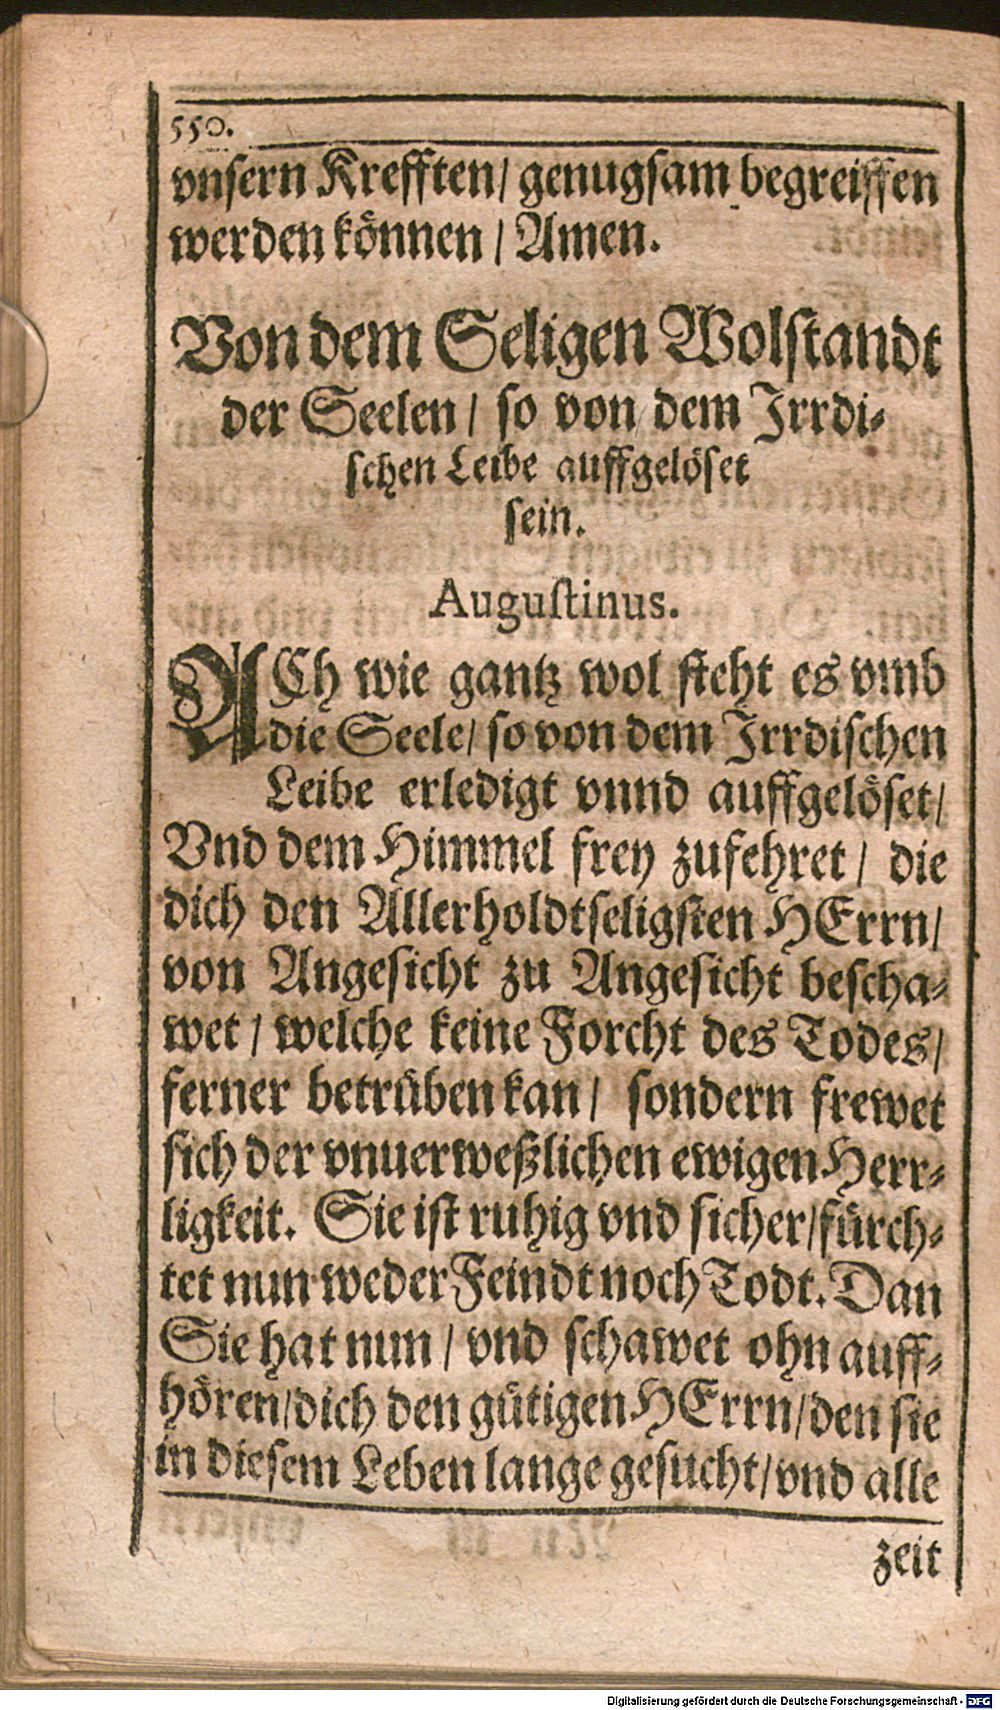 550.
vnsern Krefften/ genugsam begreiffen
werden können / Amen.
Von dem Seligen Wolstandt
der Seelen/ so von dem Irrdi-
schen Leibe auffgelöset
sein.
Augustinus.
ACh wie gantz wol steht es vmb
die Seele/ so von dem Irrdischen
Leibe erledigt vnnd auffgelöset/
Vnd dem Himmel frey zufehret / die
dich den Allerholdtseligsten HErrn/
von Angesicht zu Angesicht bescha-
wet / welche keine Forcht des Todes/
ferner betrüben kan / sondern frewet
sich der vnuerweßlichen ewigen Herr-
ligkeit. Sie ist ruhig vnd sicher/fürch-
tet nun weder Feindt noch Todt. Dan
Sie hat nun / vnd schawet ohn auff-
hören/dich den gütigen HErrn/den sie
in diesem Leben lange gesucht/vnd alle
zeit
Digitalisierung gefördert durch die Deutsche Forschungsgemeinschaft - DFG